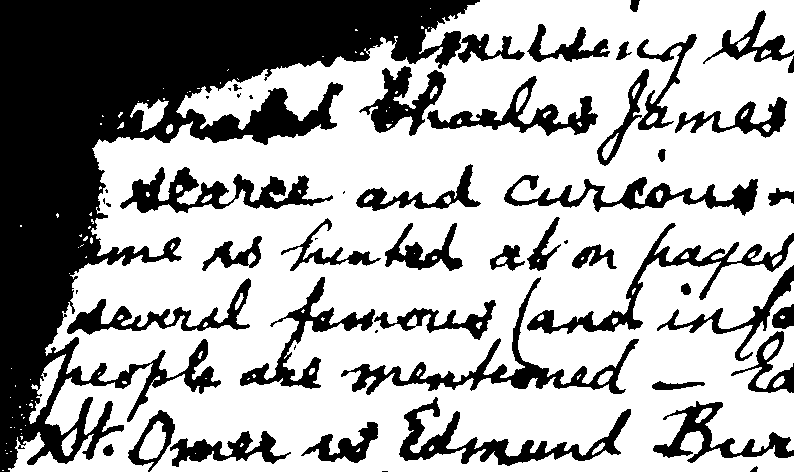 amusing sa
ebrated Charles James
scarce and curious -
ame is hinted at on pages
several famous (and infa
people are mentioned — Ed
St. Omer is Edmund Bur